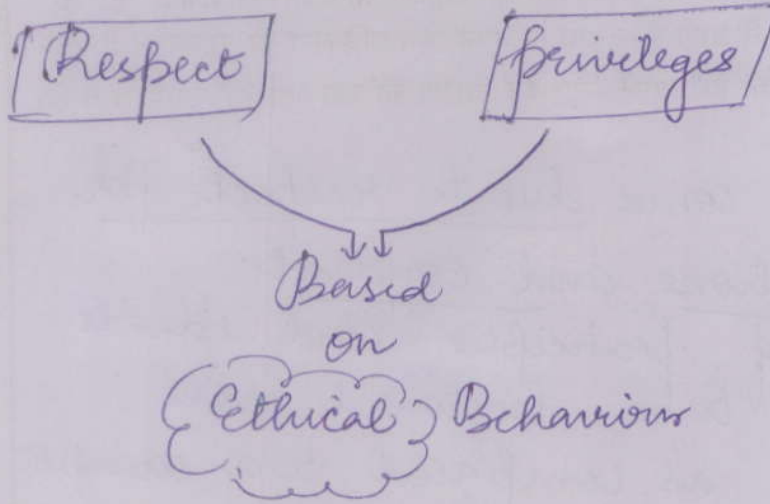 Respect privileges
Based
on
Ethical Behaviour